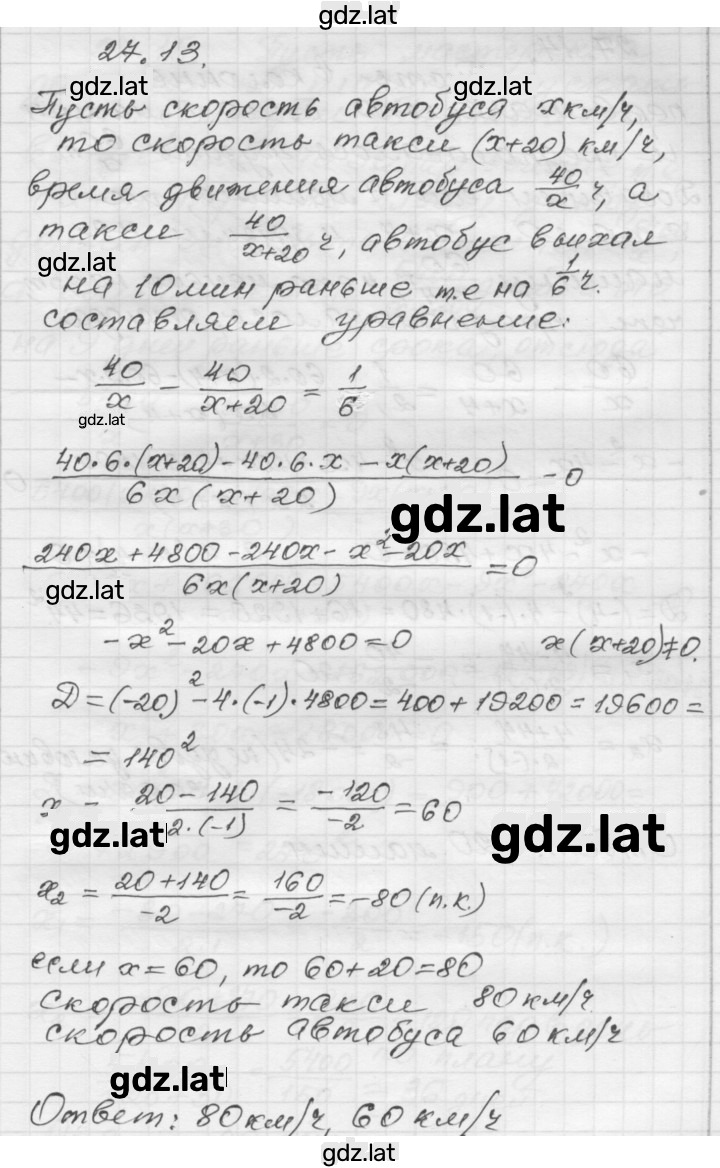 gdz.lat
27.13.
gdz.lat
Пусть скорость автобуса x км/ч,
то скорость такси (x+20) км/ч,
время движения автобуса 40/x ч, а
такси 40/(x+20) ч, автобус выехал
gdz.lat
на 10 мин раньше т.е на 1/6 ч.
составляем уравнение:
40/x - 40/(x+20) = 1/6
gdz.lat
(40·6·(x+20) - 40·6·x - x(x+20))/(6x(x+20)) - 0
gdz.lat
(240x + 4800 - 240x - x² - 20x)/(6x(x+20)) = 0
gdz.lat
-x² - 20x + 4800 = 0 x(x+20)≠0.
D = (-20)² - 4·(-1)·4800 = 400 + 19200 = 19600 =
= 140²
x - (20-140)/(2·(-1)) = -120/-2 = 60
gdz.lat gdz.lat
x₂ = (20+140)/-2 = 160/-2 = -80 (п.к.)
если x = 60, то 60+20=80
скорость такси 80 км/ч
скорость автобуса 60 км/ч
gdz.lat
Ответ: 80 км/ч, 60 км/ч
gdz.lat